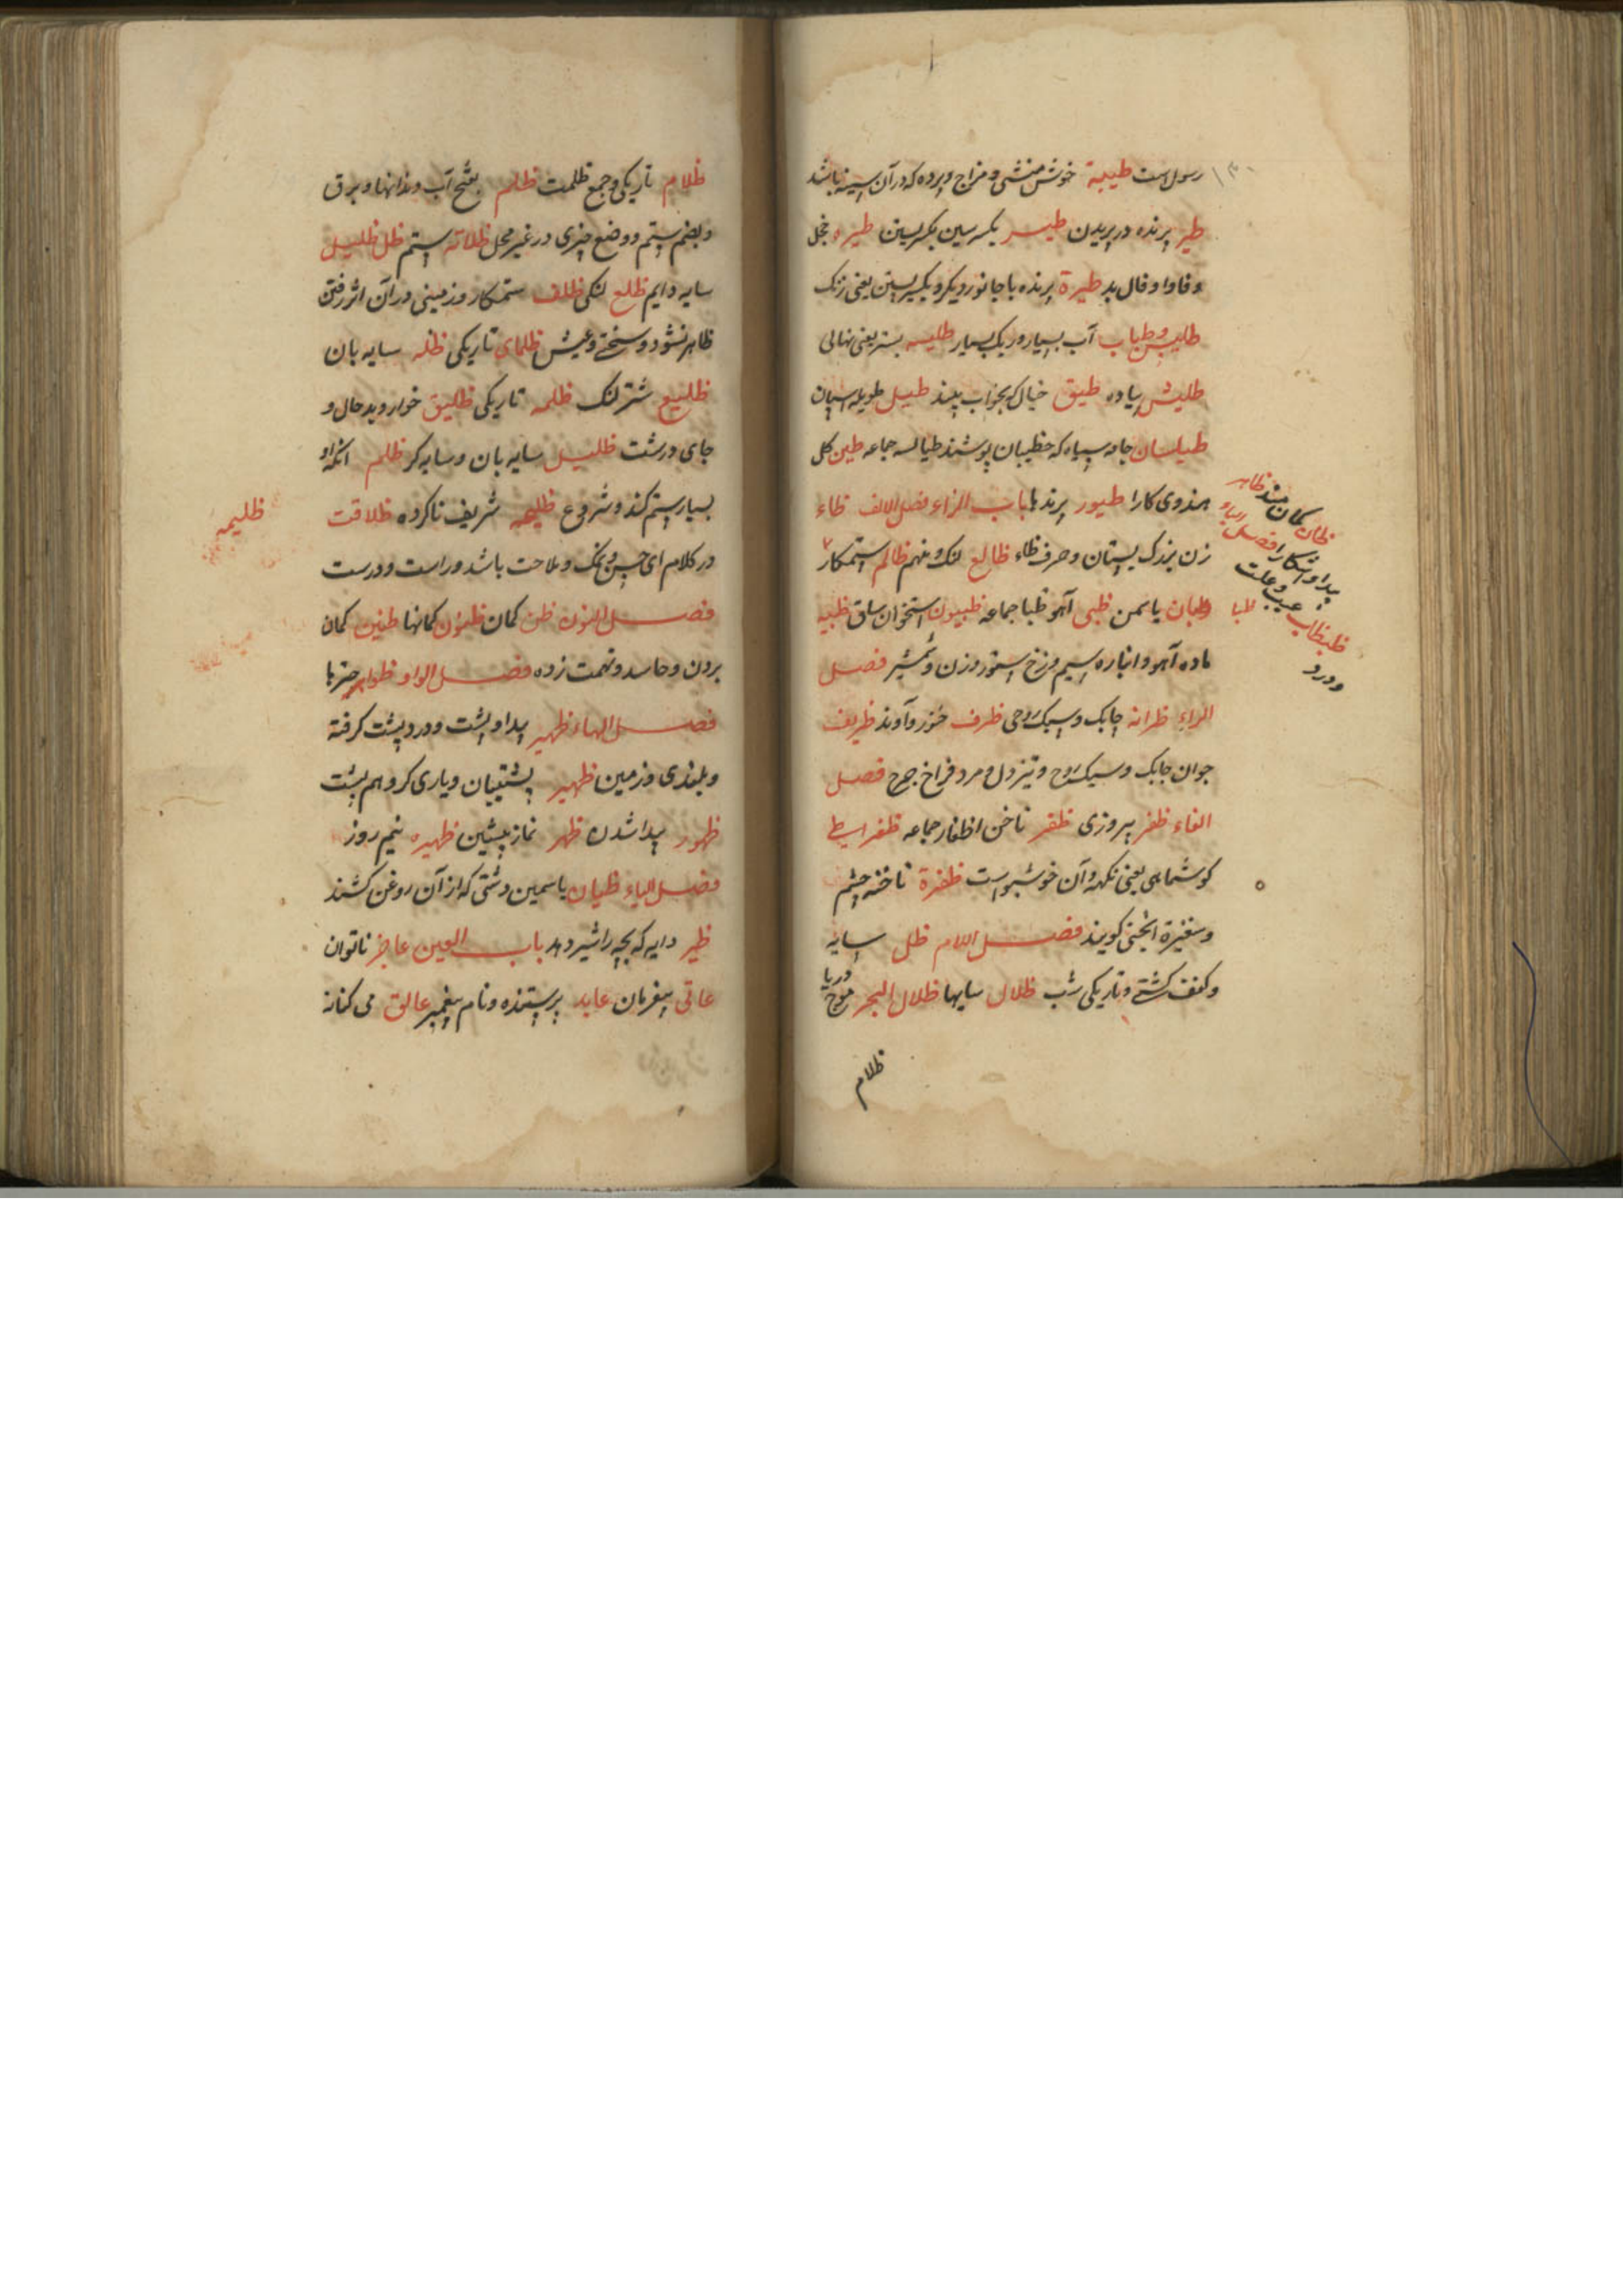 رسول است طیبة خوش منشی و مزاج و پرده که در آن سینه باشد
طیر پرنده در پریدن طیسر یکسر سین بکسر بسین طیره خجل
و فال بد طیرة پرنده با جانور دیگر و بکسر بسین یعنی زنک
آب بسیار و ریک بسیار طلیسه بستر یعنی نهالی
طلیش پیاده طیق خیال که بخواب بینند طیل طویله اسپان
طیلسان جامه سیاه که خطیبان پوشند طیالسه جماعه طین کل
هندوی کارا طیور پرندها باب الزاء فصل الالف ظاء
زن بزرک پستان و حرف ظاء ظالع لنک و منهم ظالم ستمکار
ظیان یاسمن ظبی آهو ظبا جماعه ظبیون استخوان ساق ظبیه
ماده آهو و انباره سیم و زخ ستور و زن و شمشیر فصل
الراء ظرانه چابک و سبک روحی ظرف خنور و آوند ظریف
جوان چابک و سبک روح و تیز دل و مرد فراخ جرح فصل
الفاء ظفر پیروزی ظفر ناخن اظفار جماعه ظفر اسیط
کوشماهی یعنی نکهه و آن خوشبو است ظفرة ناخنه چشم
کویند فصل اللام ظل سایه
و کنف کشتی و تاریکی شب ظلال سایها ظلال البحر موج دریا
ظلام
ظان کمان مند ظاهر
پیدا و آشکارا فصل الباء
ظبظاب عیب و علت
ودرد
ظبا
ظلام تاریکی و جمع ظلمت ظلم بفتح آب دندانها و برق
و بضم ستم و وضع چیزی در غیر محل ظلاته ستم ظل ظلیل
سایه دایم ظلع لنکی ظلف ستمکار و زمینی در آن اثر رفتن
ظاهر نشود و سختی و عیش ظلمای تاریکی ظله سایه بان
ظلیع شتر لنک ظلمه تاریکی ظلیق خوار و بد حال و
جای درشت ظلیل سایه بان و سایه کر ظلم آنکه او
بسیار ستم کند و شروع ظلیمه شریف ناکرده ظلاقت
در کلام ای حسن و نمک و ملاحت باشد و راست و درست
فصل النون ظن کمان ظنون کمانها ظنین کمان
بردن و حاسد و تهمت زده فصل الواو ظواهر چیزها
فصل الهاء ظهیر پیدا و پشت و درد پشت کرفته
و بلندی و زمین ظهیر پشتیبان و یاری کر و هم پشت
ظهور پیدا شدن ظهر نماز پیشین ظهیره نیم روز
فصل الیاء ظیان یاسمین دشتی که از آن روغن کشند
ظیر دایه که بچه را شیر دهد باب العین عاجز ناتوان
عاتی بیفرمان عابد پرستنده و نام پیغمبر عالق می کنانه
ظلیمه